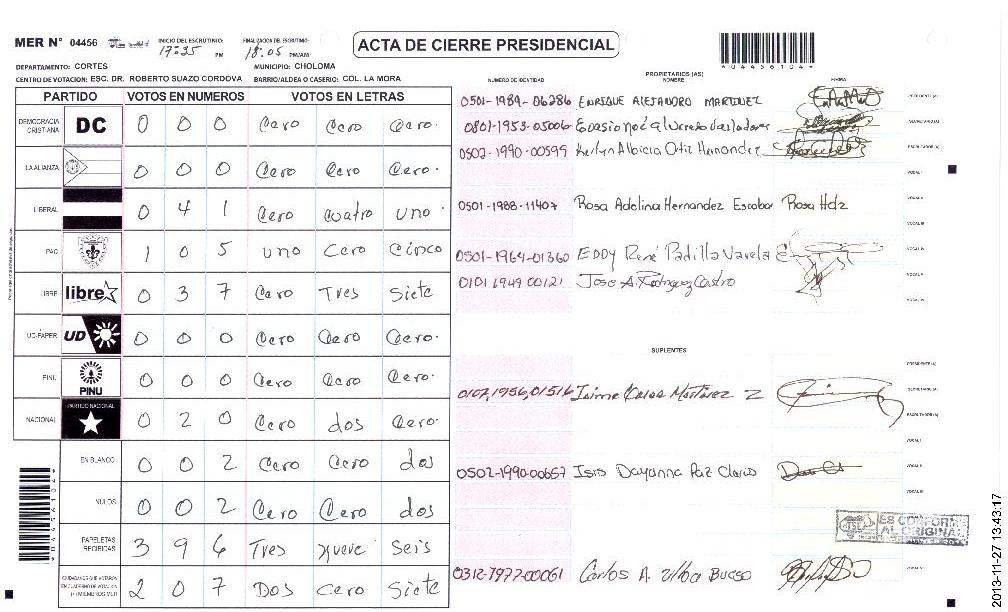 MER N° 04456
INICIO DEL ESCRUTINIO: 17:35 PM
FINALIZACION DEL ESCRUTINIO: 18:05 PM/AM
ACTA DE CIERRE PRESIDENCIAL
*04456104*
DEPARTAMENTO: CORTES MUNICIPIO: CHOLOMA
CENTRO DE VOTACION: ESC. DR. ROBERTO SUAZO CORDOVA BARRIO/ALDEA O CASERIO: COL. LA MORA
PARTIDO VOTOS EN NUMEROS VOTOS EN LETRAS
DEMOCRACIA CRISTIANA DC 0 0 0 Cero Cero Cero.
LA ALIANZA 0 0 0 Cero Cero Cero.
LIBERAL 0 4 1 Cero cuatro uno.
PAC 1 0 5 uno Cero Cinco
LIBRE libre 0 3 7 Cero Tres Siete
UD-FAPER UD 0 0 0 Cero Cero Cero.
PINU PINU 0 0 0 Cero Cero Cero.
NACIONAL PARTIDO NACIONAL 0 2 0 Cero dos Cero.
EN BLANCO 0 0 2 Cero Cero dos
NULOS 0 0 2 Cero Cero dos
PAPELETAS RECIBIDAS 3 9 6 Tres nueve seis
CIUDADANOS QUE VOTARON EN CUADERNO DE VOTACION (+) MIEMBROS MER 2 0 7 Dos Cero Siete
PROPIETARIOS (AS)
NUMERO DE IDENTIDAD NOMBRE FIRMA
0501-1989-06286 ENRIQUE ALEJANDRO MARTINEZ PRESIDENTE (A)
0801-1953-05006 SECRETARIO (A)
0502-1990-00599 Kerlyn Albicia Ortiz Hernandez ESCRUTADOR (A)
VOCAL I
0501-1988-11407 Rosa Adelina Hernandez Escobar Rosa Hdz VOCAL II
VOCAL III
0501-1964-01360 EDDY René Padilla Varela VOCAL IV
0101 1949 00121 Jose A. Rodriguez Castro VOCAL V
SUPLENTES
PRESIDENTE (A)
0107,1956,01516 Jaime Martinez Z SECRETARIO (A)
ESCRUTADOR (A)
VOCAL I
0502-1990-00657 Isis Dayanna Paz VOCAL II
VOCAL III
TSE ES CONFORME AL ORIGINAL
0312-1977-00061 Carlos A.
*04456104*
2013-11-27 13:43:17